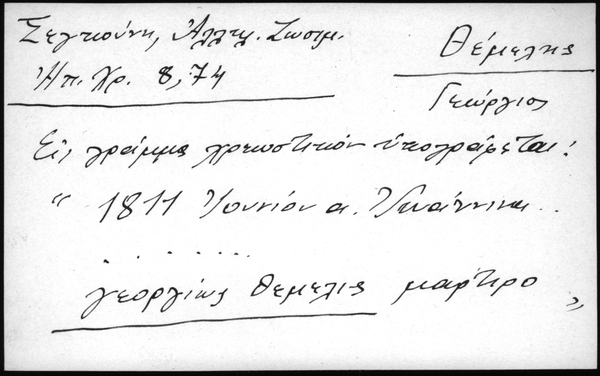 Σεγκούνη, Ἀλληλ. Ζωσιμ.
Ἠπ. Χρ. 8, 74
Θέμελης
Γεώργιος
Εἰς γράμμα χρεωστικόν ὑπογράφεται:
“ 1811 Ἰουνίου α. Ἰωάννινα..
. . . . . . .
γεοργίως θεμελις μαρτιρο „